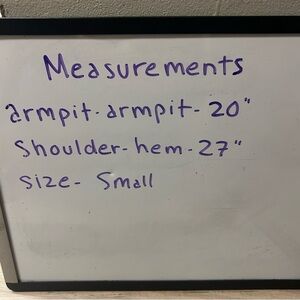 Measurements
armpit-armpit- 20"
Shoulder-hem-27"
size- Small